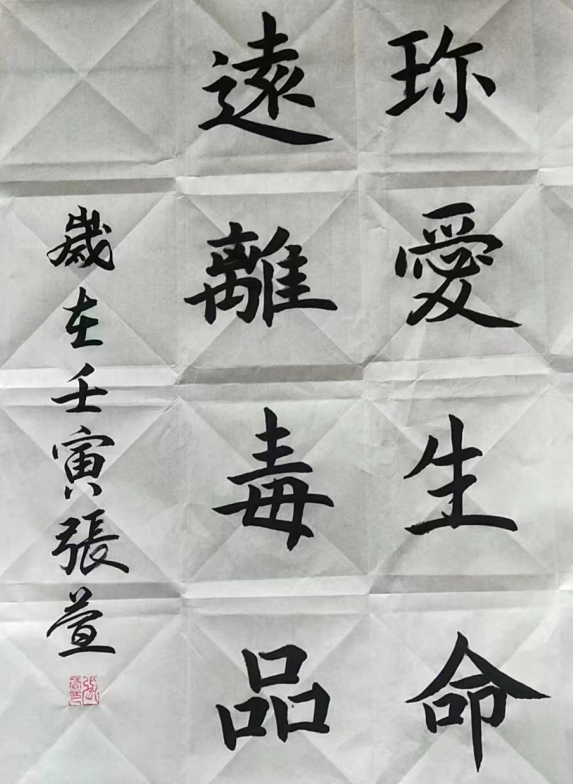 珎愛生命
遠離毒品
歲在壬寅張萱